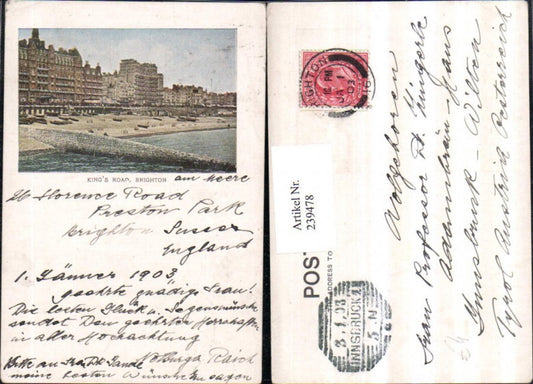 KING'S ROAD, BRIGHTON
am Meere
26 Florence Road
Preston Park
Brighton Sussex
England
1. Jänner 1903
geehrte gnädige Frau!
Die besten Glück u. Segenswünsche
sendet Den geehrten Herrschaften
in aller Hochachtung
Bitte an
meine besten Wünsche zu sagen
Artikel Nr.
239478
POST
ADDRESS TO
BRIGHTON
PM
JA 1
03
3.1.03
INNSBRUCK 1
Wolgeboren
Frau Professor
Adambräu-Haus
Innsbruck-Wilten
Tyrol Austria Österreich